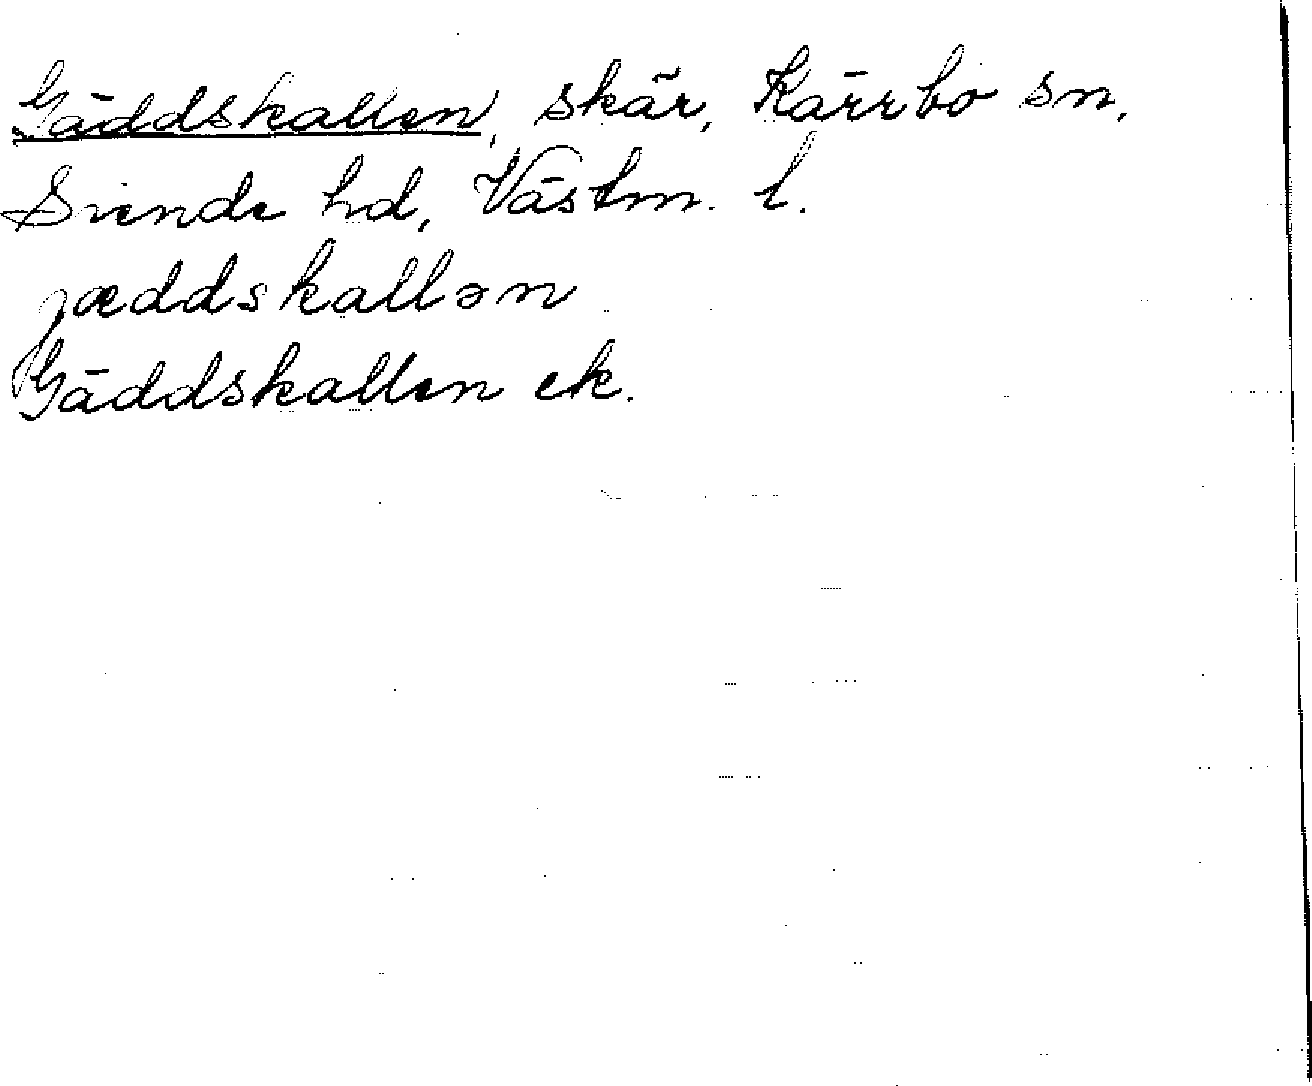 Gäddskallen, skär, Kärrbo sn,
Siende hd, Västm. l.
jæddskallən
Gäddskallen ek.